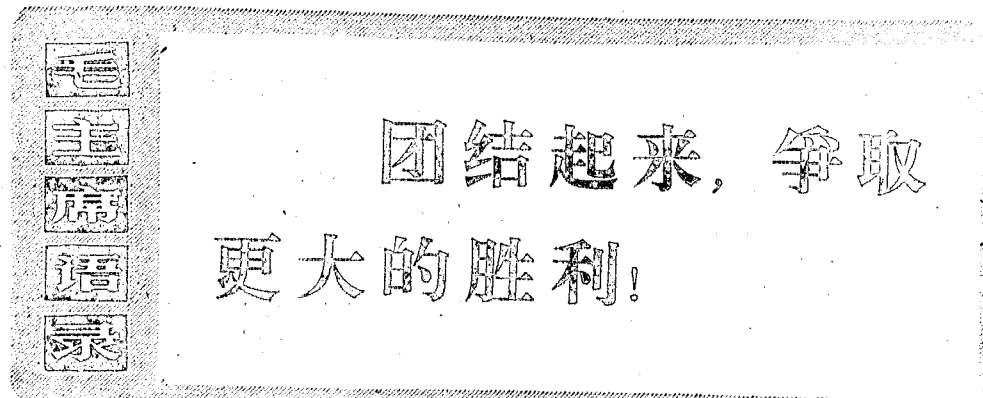 毛主席语录
团结起来，争取
更大的胜利！